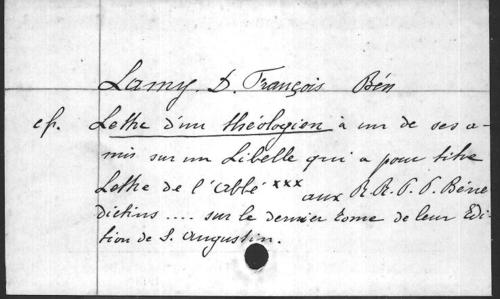 Lamy. D. François Bén
cf. Lettre d'un théologien à un de ses a-
mis sur un Libelle qui a pour titre
Lettre de l'abbé xxx aux R.R.P.P. Béné
dictins .... sur le dernier tome de leur Edi
tion de S. Augustin.